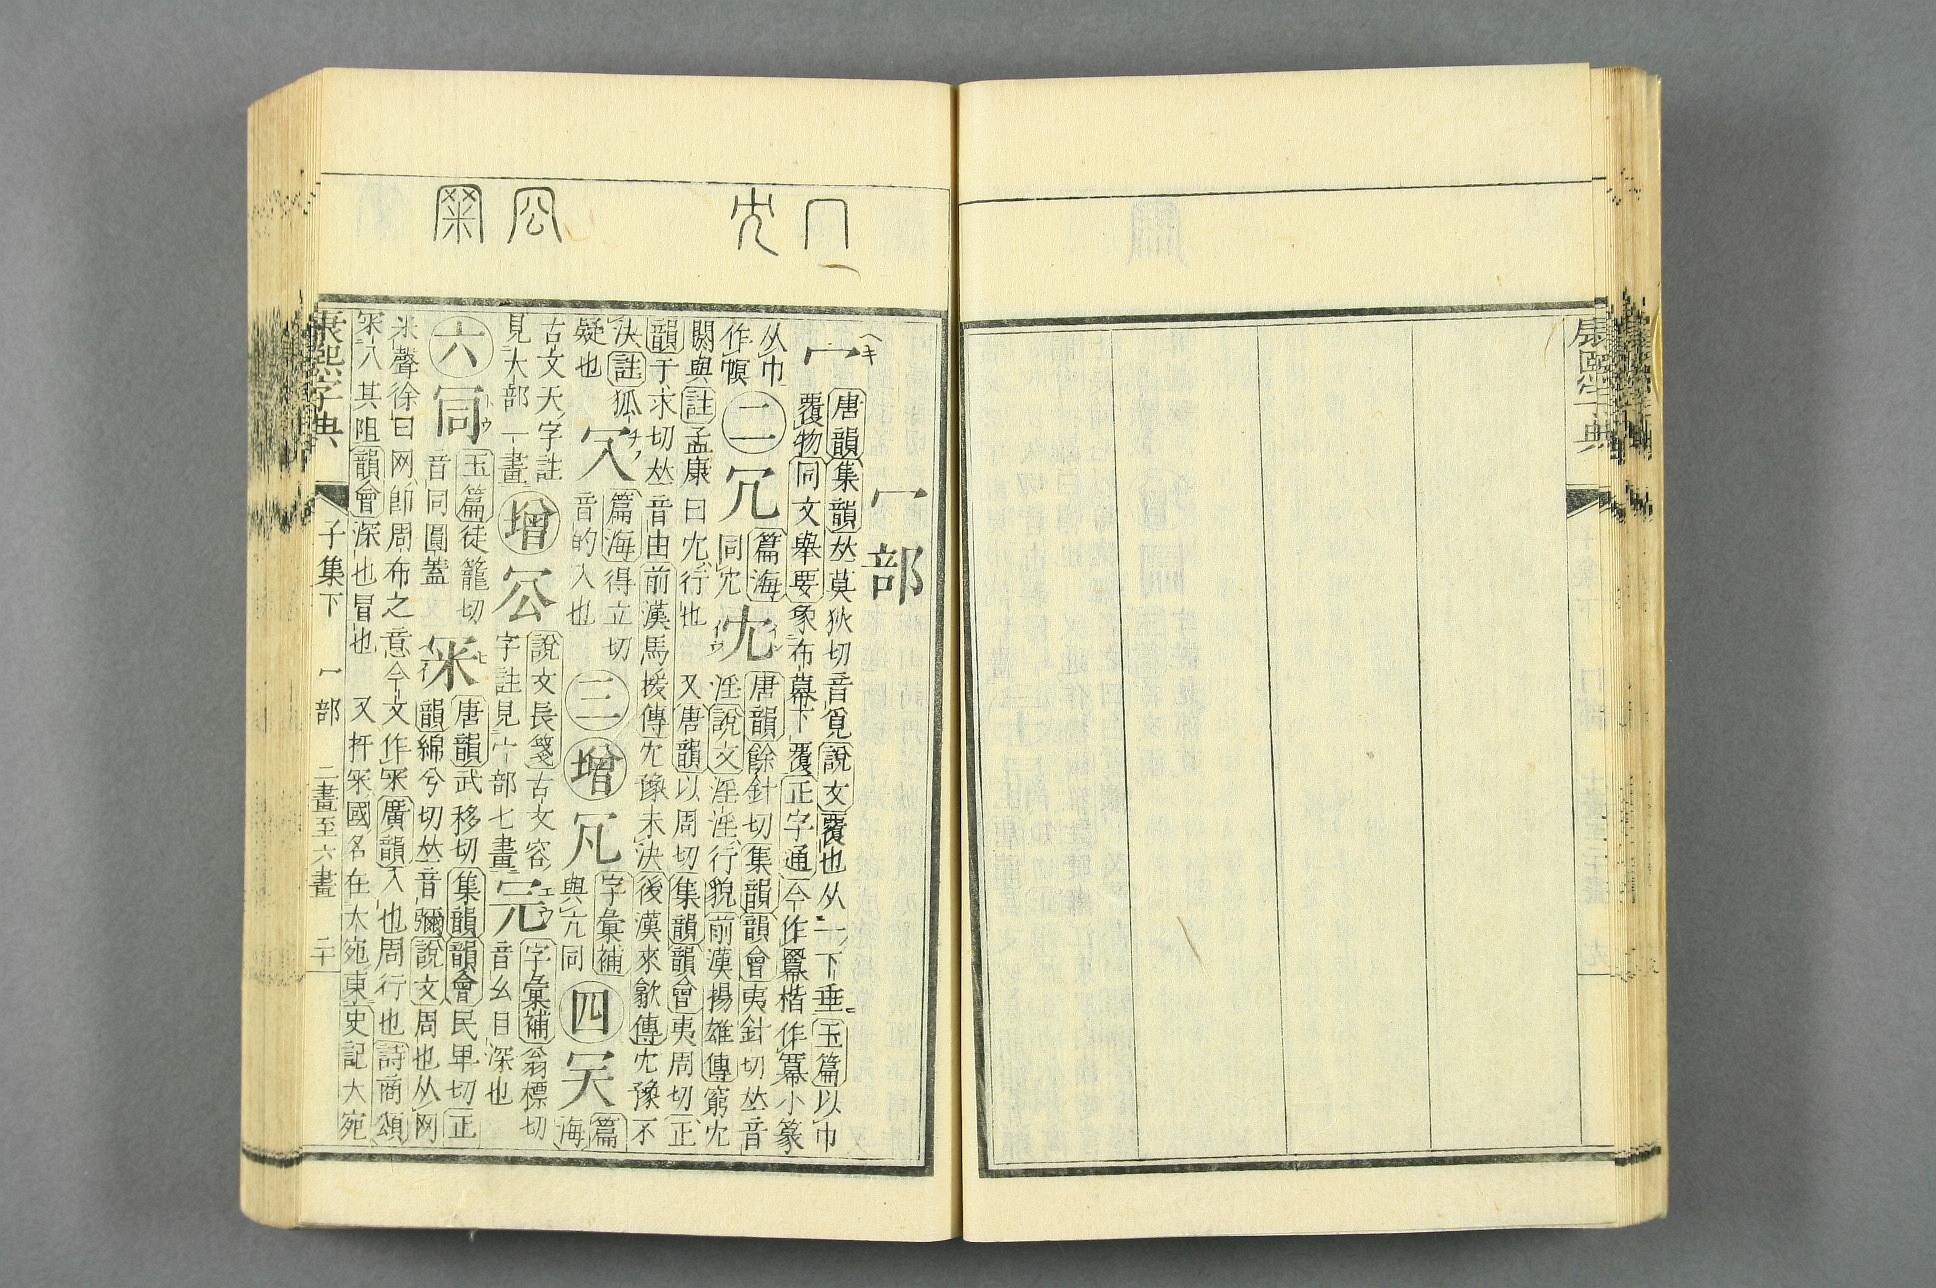 康熙字典
冖部
冖
ヘキ
唐韻集韻𠀤莫狄切音覓說文覆也从一下垂玉篇以巾
覆物同文舉要象布幕下覆正字通今作羃楷作冪小篆
从巾
作幎
二
冗
篇海
同冘
冘
唐韻餘針切集韻韻會夷針切𠀤音
淫說文淫淫行貌前漢揚雄傳窮冘
閼與註孟康曰冘行也 又唐韻以周切集韻韻會夷周切正
韻于求切𠀤音由前漢馬援傳冘豫未決後漢來歙傳冘豫不
決註狐
疑也
篇海得立切
音的入也
三
增
字彙補
與亢同
四
篇海
古文天字註
見大部一畫
增
說文長箋古文容
字註見宀部七畫
字彙補翁標切
音幺目深也
六
玉篇徒籠切
音同圓蓋
冞
唐韻武移切集韻韻會民𤰞切正
韻綿兮切𠀤音彌說文周也从网
米聲徐曰网卽周布之意今文作冞廣韻入也周行也詩商頌
冞入其阻韻會深也冒也 又扜冞國名在大宛東史記大宛
康熙字典
子集下 冖部 二畫至六畫 二十